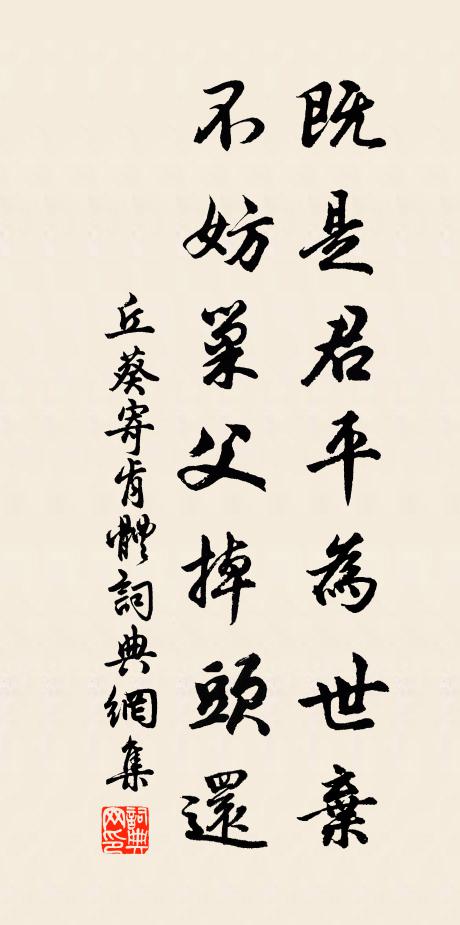 既是君平為世棄
不妨巢父掉頭還
丘葵寄肯體詞典網集
詞典網印